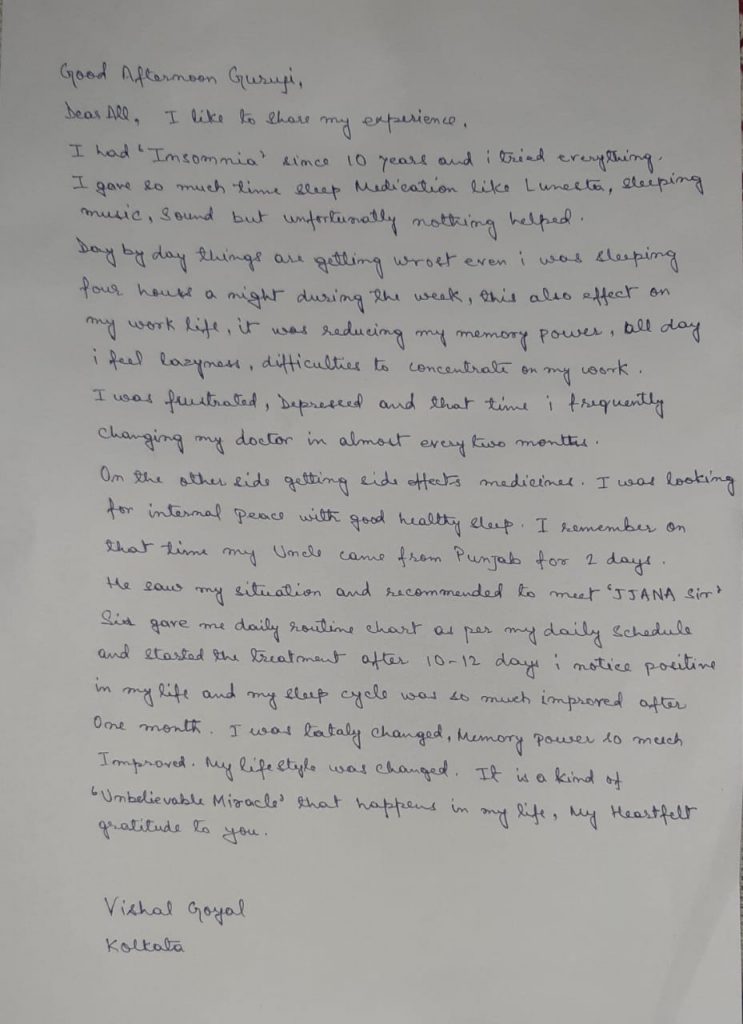 Good Afternoon Guruji,
Dear All, I like to share my experience.
I had 'Insomnia' since 10 years and i tried everything.
I gave so much time sleep Medication like Lunesta, sleeping
music, Sound but unfortunally nothing helped.
Day by day things are getting wrost even i was sleeping
four hours a night during the week, this also effect on
my work life, it was reducing my memory power, all day
i feel lazyness, difficulties to concentrate on my work.
I was frustrated, Depressed and that time i frequently
changing my doctor in almost every two months.
On the other side getting side effects medicines. I was looking
for internal peace with good healthy sleep. I remember on
that time my Uncle came from Punjab for 2 days.
He saw my situation and recommended to meet 'JJANA Sir'
Sir gave me daily routine chart as per my daily schedule
and started the treatment after 10-12 days i notice positive
in my life and my sleep cycle was so much improved after
One month. I was tataly changed, Memory power so much
Improved. My lifestyle was changed. It is a kind of
'Unbelievable Miracle' that happens in my life, My Heartfelt
gratitude to you.
Vishal Goyal
Kolkata